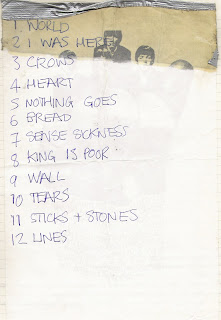 1. WORLD
2 I WAS HERE
3 CROWS
4 HEART
5 NOTHING GOES
6 BREAD
7 SENSE SICKNESS
8 KING IS POOR
9 WALL
10 TEARS
11 STICKS + STONES
12 LINES